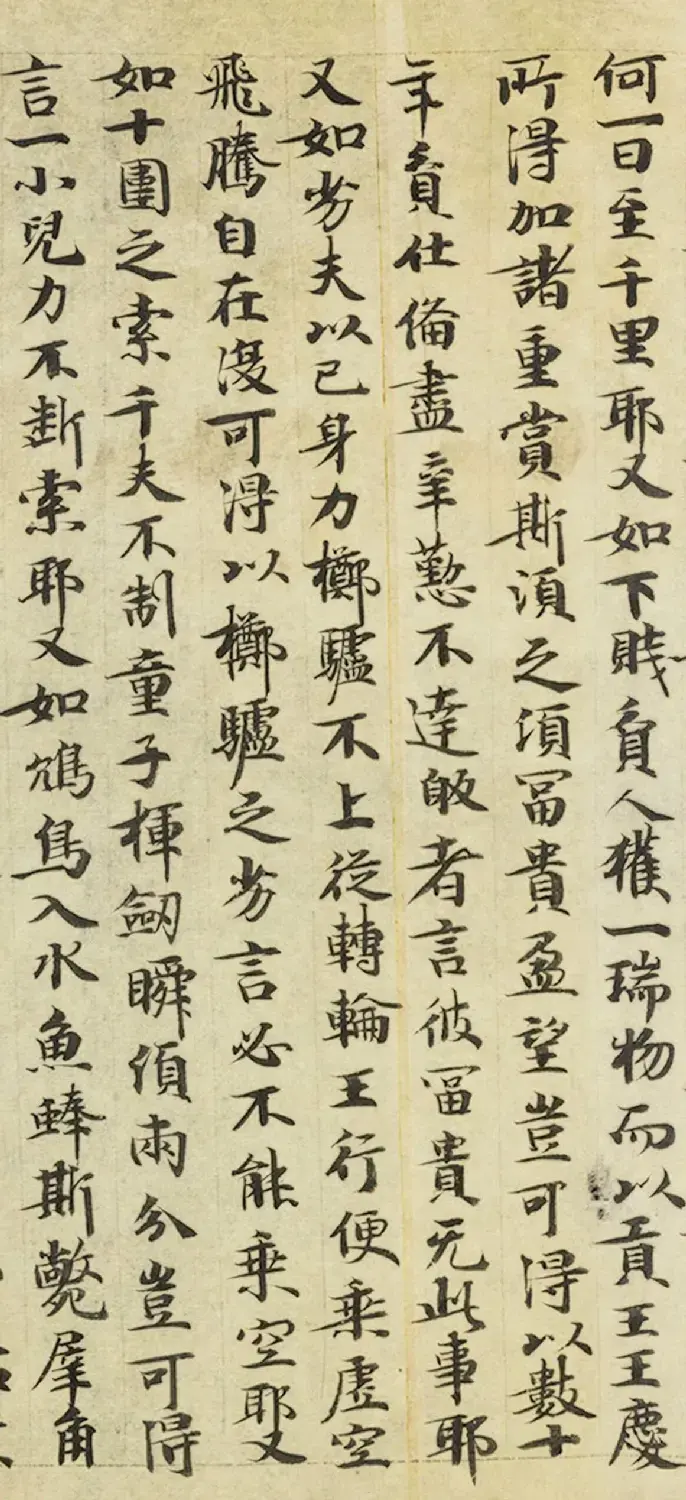 何一日至千里耶又如下賤貧人獲一瑞物而以貢王王慶
所得加諸重賞斯湏之湏冨貴盈望豈可得以數十
年貧仕俻盡辛懃不達敀者言彼冨貴无此事耶
又如劣夫以己身力擲驢不上從轉輪王行便乗虛空
飛騰自在復可得以擲驢之劣言必不能乗空耶又
如十圍之索千夫不制童子揮劔瞬湏兩分豈可得
言一小兒力不断索耶又如鴆鳥入水魚蜯斯斃犀角